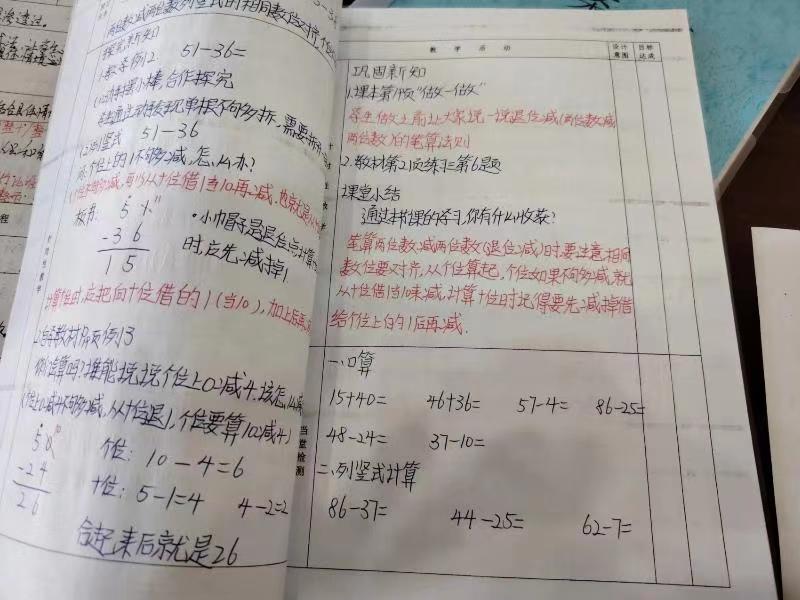 两位数减两位数列竖式时相同数位对齐,个位
探究新知
1.教学例2 51-36=
(1)动手摆小棒,合作探究
(2)列竖式 51-36
问:个位上的1不够减,怎么办?
个位不够减,可以从十位借1当10再减.
板书: 5 1
- 3 6
1 5
·小帽子是退位点计算
时应先减掉1
计算十位时,应把向十位借的1(当10),加上后再
2.自学教材 例3
你会算吗?谁能说说个位上0减4,该怎么减
个位上0减4不够减,从十位退1,个位要算10减4)
5 0
-2 4
2 6
个位: 10-4=6
十位: 5-1=4 4-2=2
合起来后就是26
程
当堂检测
教 学 活 动
设计意图
目标达成
巩固新知
1.课本第 页“做一做”
学生做上前让大家说一说退位减(两位数减
两位数)的笔算法则
2.教材第21页练习三第6题
课堂小结
通过本节课的学习,你有什么收获?
笔算两位数减两位数(退位减)时要注意相同
数位要对齐,从个位算起,个位如果不够减,就
从十位借1当10来减,计算十位时记得要先减掉借
给个位上的1后再减.
一、口算
15+40= 46+36= 57-4= 86-25=
48-24= 37-10=
二、列竖式计算
86-37= 44-25= 62-7=